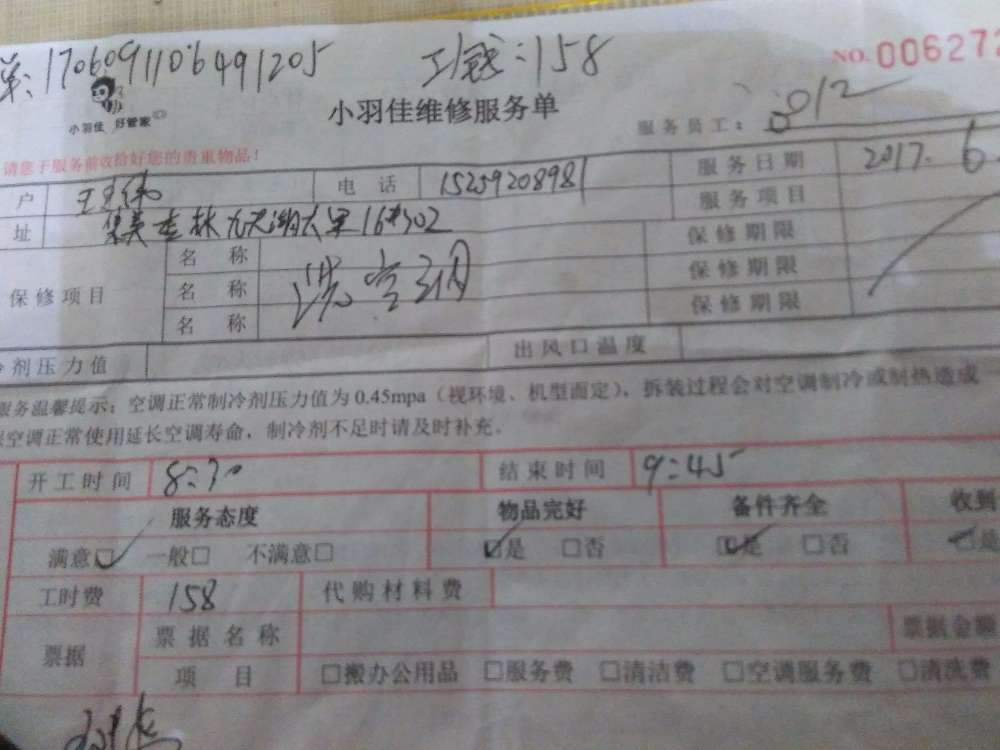 单:1706091106491205 工钱:158 NO.006272
小羽佳 好管家
小羽佳维修服务单
服务员工: 8012
请您于服务前收拾好您的贵重物品!
户 电话 15259208981 服务日期 2017.6
址 集美杏林九天湖太里16#302 服务项目
保修项目 名称 洗空调 保修期限
名称 保修期限
名称 保修期限
剂压力值 出风口温度
服务温馨提示:空调正常制冷剂压力值为0.45mpa(视环境、机型而定)、拆装过程会对空调制冷或制热造成
空调正常使用延长空调寿命,制冷剂不足时请及时补充。
开工时间 8:30 结束时间 9:45
服务态度 物品完好 备件齐全 收到
满意☑ 一般□ 不满意□ ☑是 □否 ☑是 □否 ☑是
工时费 158 代购材料费
票据 票据名称 票据金额
项目 □搬办公用品 □服务费 □清洁费 □空调服务费 □清洗费